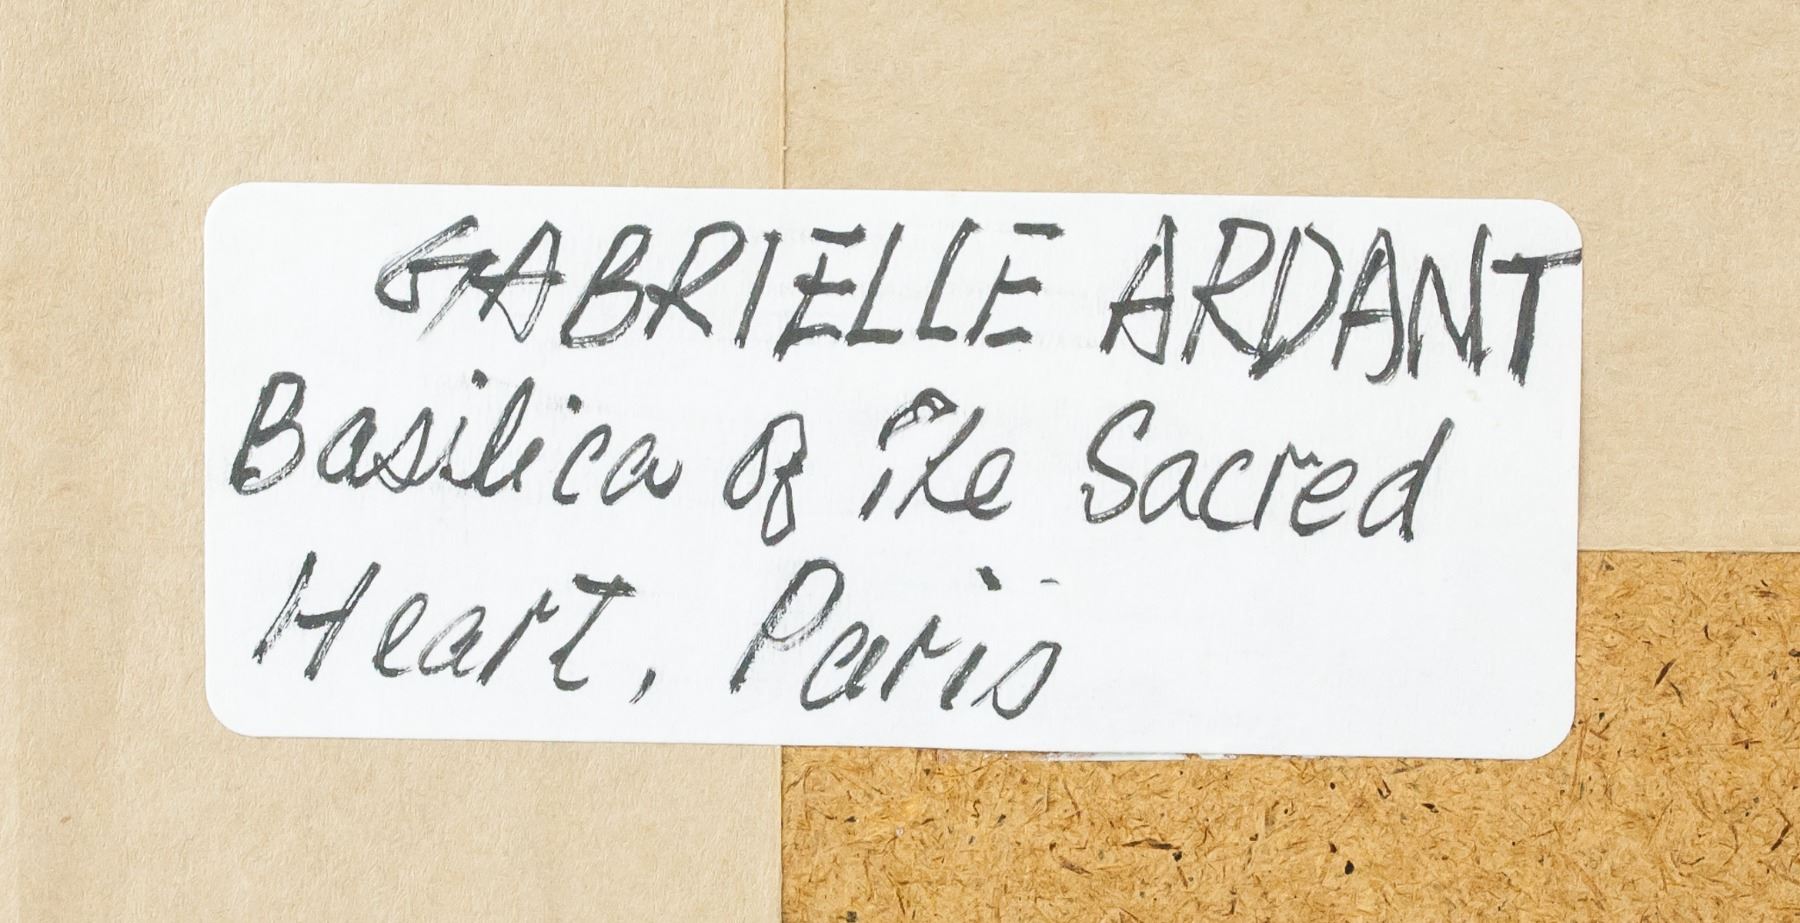 GABRIELLE ARDANT
Basilica of the Sacred
Heart, Paris